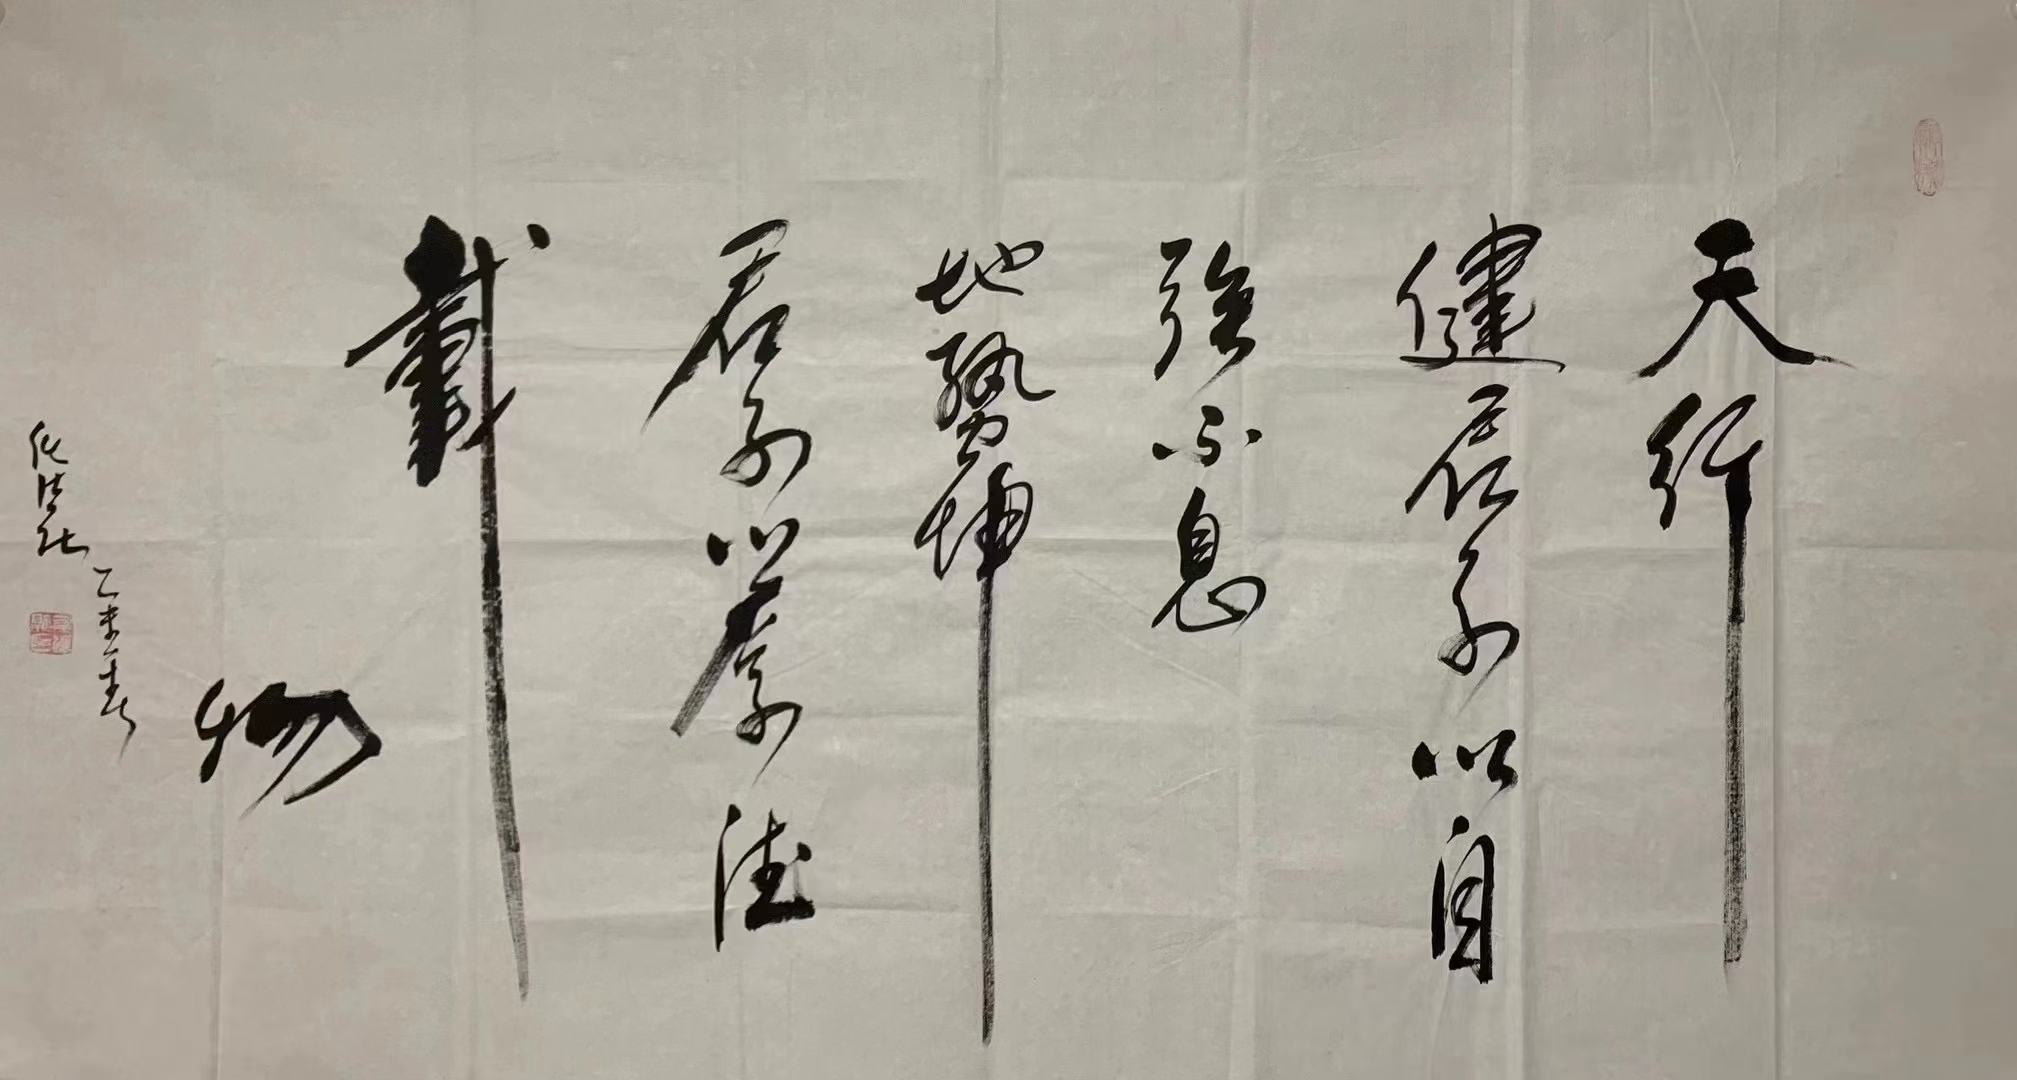 天行
健君子以自
强不息
地势坤
君子以厚德
载
物
乙未春